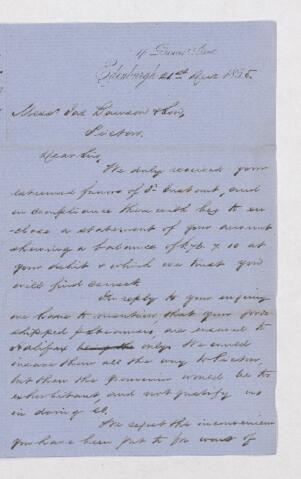 Edinburgh 21st April 1855.
Messrs Jas Dawson & Son,
Pictou.
Dear Sirs,
We duly received your
esteemed favors of 5th Instant, and
in compliance therewith beg to en-
close a statement of your account
shewing a balance of £76. 7. 10 at
your debit & which we trust you
will find correct.
In reply to your enquiry
we have to mention that your goods
shipped Steamers, are insured to
Halifax only. We could
insure them all the way to Pictou,
but then the Premium would be so
exhorbitant and not justify us
in doing so.
We regret the inconvenience
you have been put to for want of